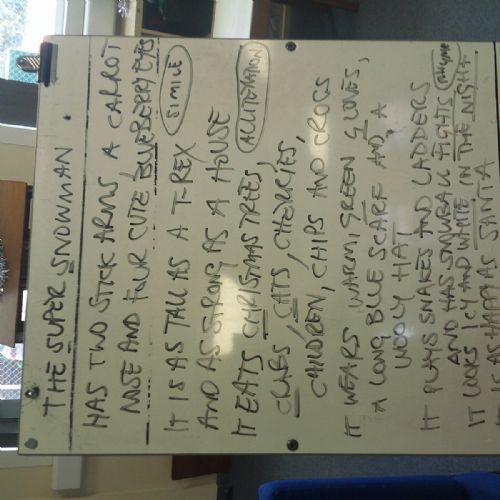 THE SUPER SNOWMAN.
HAS TWO STICK ARMS, A CARROT
NOSE AND FOUR CUTE BLUEBERRY EYES
IT IS AS TALL AS A T-REX SIMILE
AND AS STRONG AS A HOUSE
IT EATS CHRISTMAS TREES, ALLITERATION
CRABS, CATS, CHERRIES,
CHILDREN, CHIPS AND CROCS
IT WEARS WARM, GREEN GLOVES,
A LONG BLUE SCARF AND A
WOOLY HAT
IT PLAYS SNAKES AND LADDERS
AND HAS SNOWBALL FIGHTS RHYME
IT LOOKS ICY AND WHITE IN THE NIGHT
IT IS AS HAPPY AS SANTA